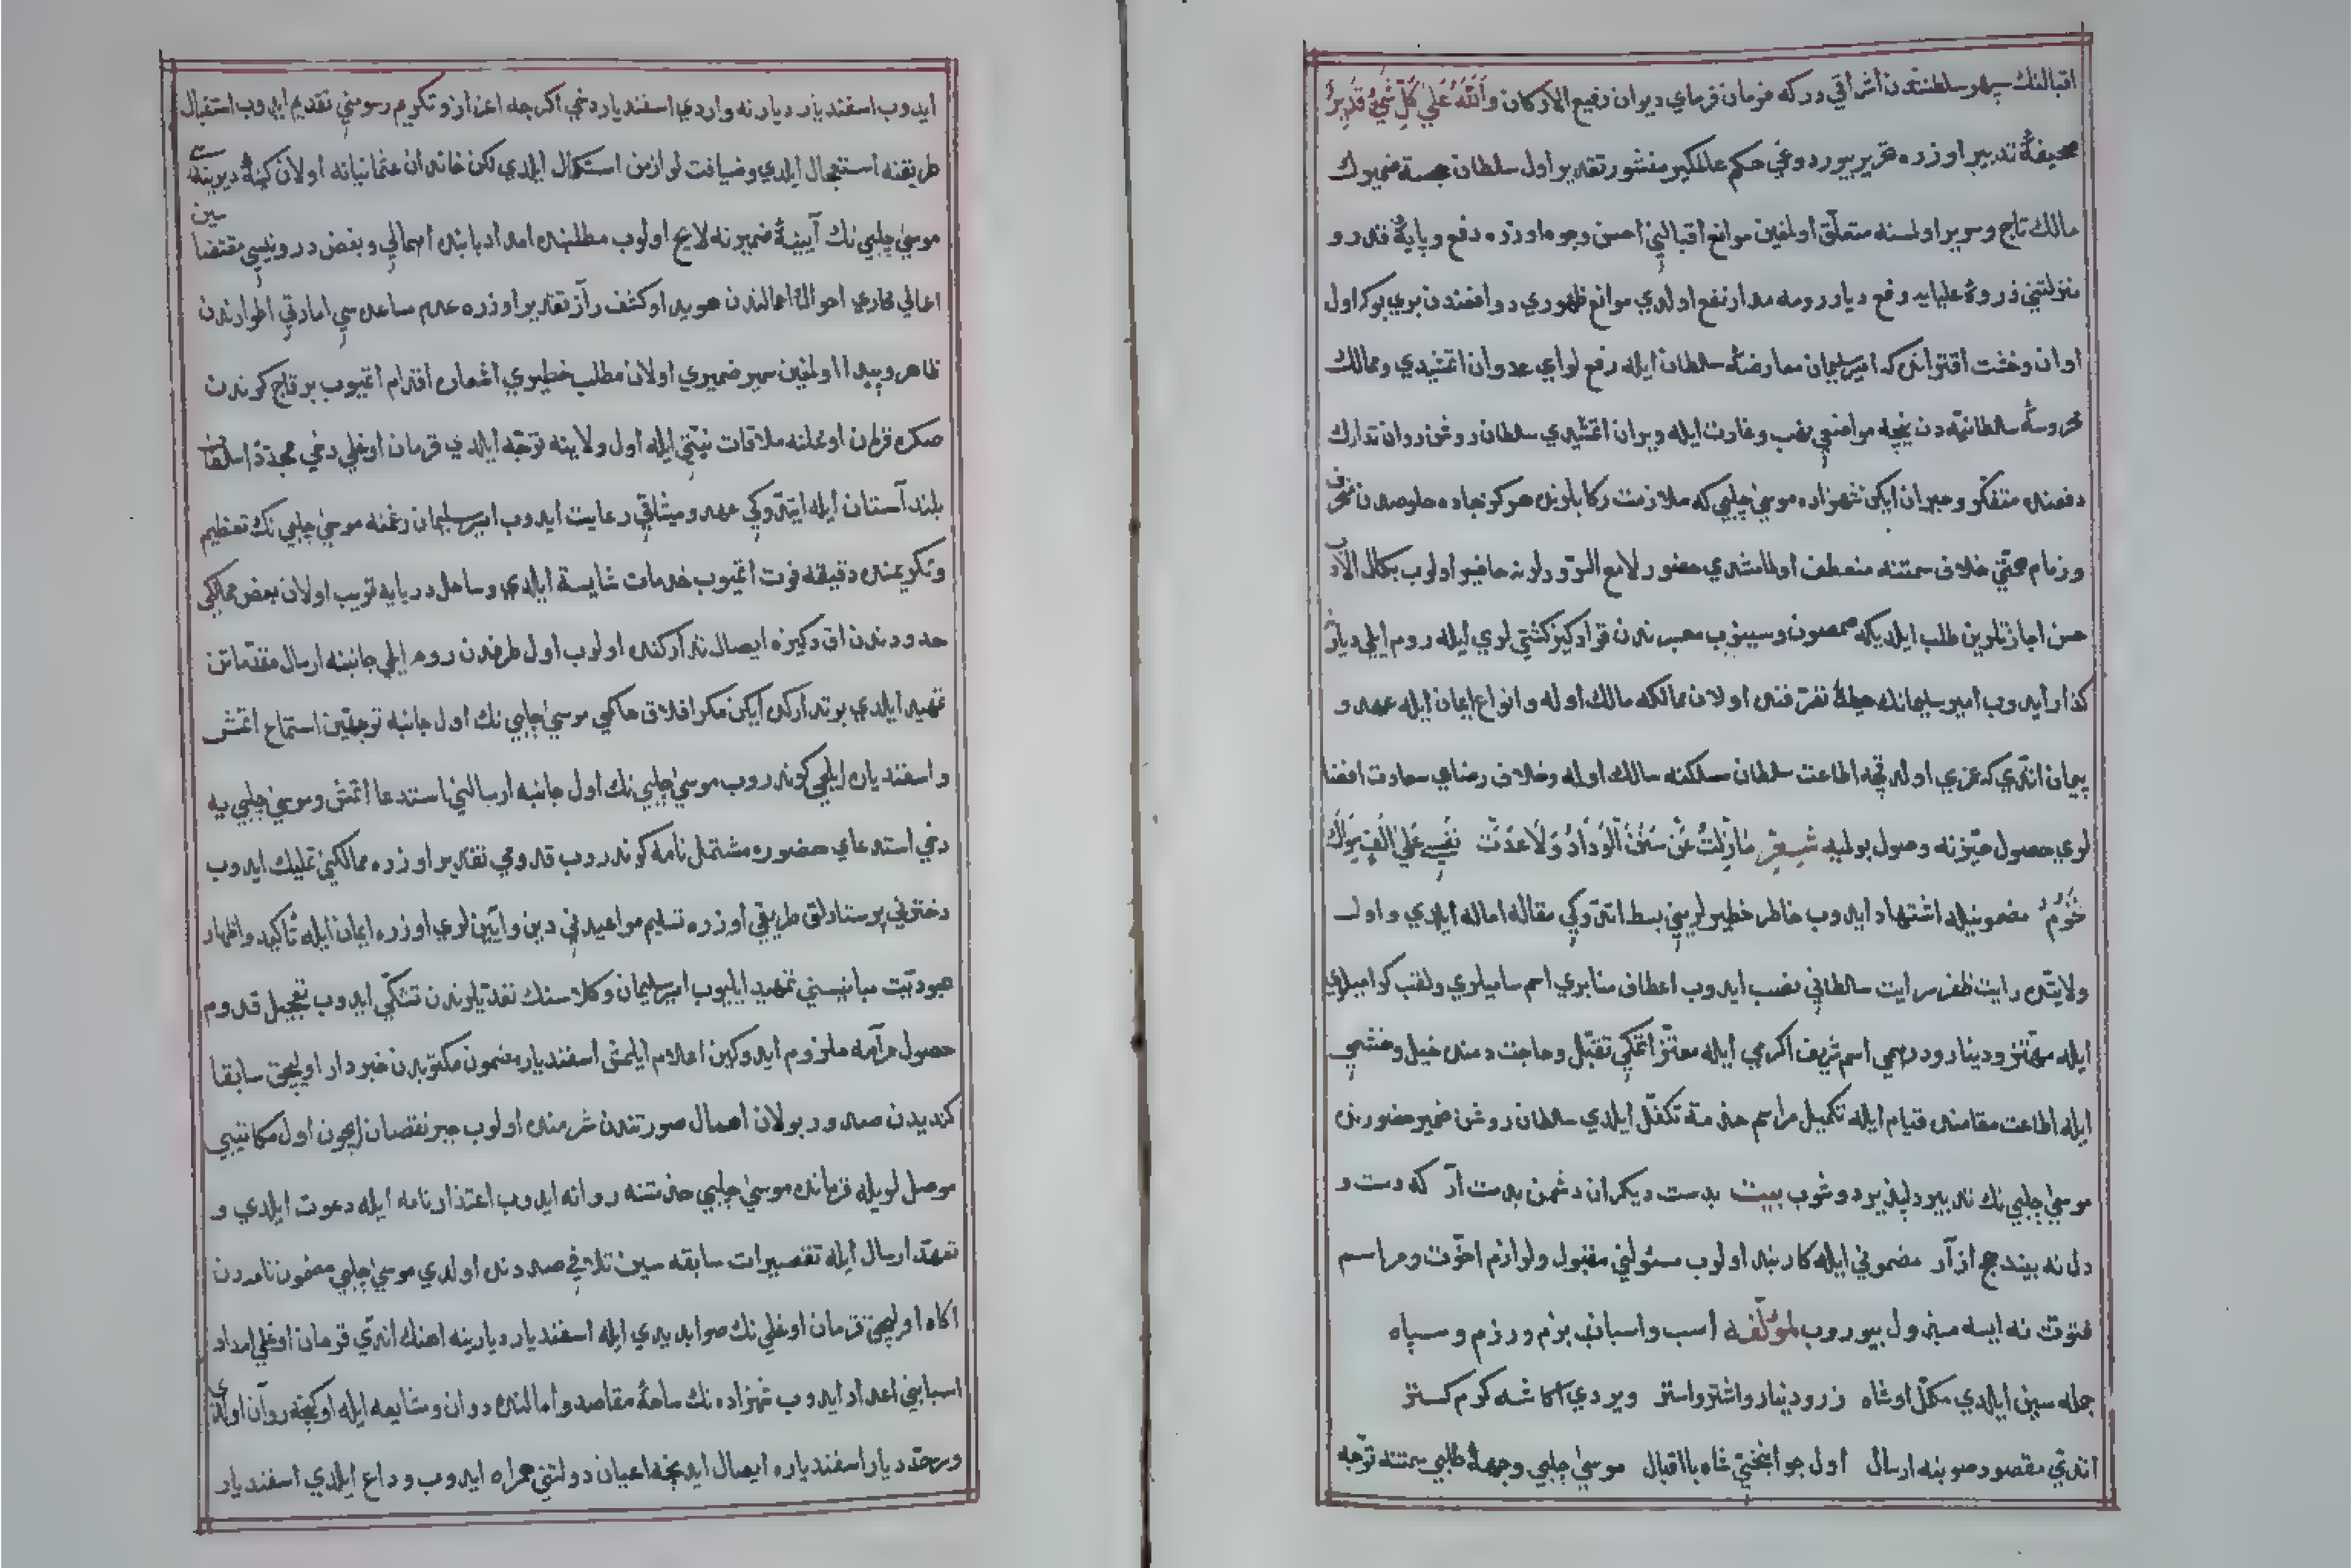 اقبالنك سپهر سلطنتدن اشراقي در كه فرمان فرماي ديوان رفيع الاركان والله علي كل شيء قدير
صحيفهٔ تدبير اوزره تحرير بيوردوغي حكم عالمكير منشور تقدير اول سلطان ضميرك
مالك تاج وسرير اولمسنه متعلّق اولمغين موانع اقبالني احسن وجوه اوزره دفع وپايهٔ قدر و
منزلتني ذروهٔ عليايه رفع ديار رومه مدار نفع اولدي موانع ظهوري دوافعندن بري بو كه اول
اوان وخشت اقترانده كه امير سليمان معارضهٔ سلطان ايله رفع لواي عدوان اتمشيدي وممالك
محروسهٔ سلطانيّه دن نيچه مواضعي نهب وغارت ايله ويران اتمشيدي سلطان روشن روان تدارك
دفعنده متفكّر وحيران ايكن شهزاده موسي چلبي كه ملازمت ركابلرنده هركز جاده خلوصدن منحرف
وزمام همتي خلاف سمتنه منعطف اولمامشدي حضور لامع السرورلرنه حاضر اولوب بكمال الادب
حسن اجازتلرين طلب ايلديكه صمصون وسينوب معبرندن قرادكز كشتيلري ايله روم ايلي ديارنه
كذار ايدوب امير سليمانك حيطهٔ تصرّفنده اولان ممالكه مالك اوله وانواع ايمان ايله عهد و
پيمان اتدي كه عمري اولدقچه اطاعت سلطان مسلكنه سالك اوله وخلاف رضاي سعادت اقتضا
لري حصول حيّزنه وصول بولميه شعر مازلت عن سنن الوداد ولا عدت نفسي علي الف يراك
مضمونيله اشتهاد ايدوب خاطر خطيرلرني بسط اتدوكي مقاله اماله ايلدي واول
ولايتده رايت ظفر سرايت سلطاني نصب ايدوب اعطاف منابري اسم ساميلري ولقب كراميلري
ايله مهتز ودينار ودرهمي اسم شريف اكرمي ايله معتزّ اتمكي تقبّل وحاجت دمنده خيل وحشمي
ايله اطاعت مقامنده قيام ايله تكميل مراسم خدمته تكفّل ايلدي سلطان روشن ضمير حضورنده
موسي چلبي نك تدبير دلپذير دوشوب بيت بدست ديكران دشمن بدست آر كه دست و
دل نه بيند هيچ ازار مضموني ايله كاربند اولوب مسئولني مقبول ولوازم اخوّت ومراسم
فتوّت نه ايسه مبذول بيوروب لمؤلّفه اسب واسباب بزم ورزم وسپاه
جمله سين ايلدي مكمّل او شاه زر ودينار واشتر واستر ويردي اكا شه كرم كستر
اتدي مقصود صوبنه ارسال اول جوانبختي شاه با اقبال موسي چلبي وجهۀ طلبي سمتنه توجّه
ايدوب اسفنديار ديارنه واردي اسفنديار دخي اكرچه اعزاز وتكريم رسومني تقديم ايدوب استقبال
طريقنه استعجال ايلدي وضيافت لوازمن استكمال ايلدي لكن خاندان عثمانيانه اولان كينهٔ ديرينه سي
موسي چلبي نك آيينهٔ ضميرنه لايح اولوب مطلبنده امداد بابنده اهمالي وبغض دروينسي مقتضاسين
اعالي احوال اعمالندن هويدا وكشف راز تقدير اوزره عدم مساعده سي اماراتي اطوارندن
ظاهر وپيدا اولمغين سمير ضميري اولان مطلب خطيري اشعاره اقدام اتميوب برقاچ كوندن
صكره قرمان اوغلنه ملاقات نيّتي ايله اول ولايته توجّه ايلدي قرمان اوغلي دخي مجدّدا سلطان
بلند آستان ايله ايتدوكي عهد وميثاقي رعايت ايدوب امير سليمان رغمنه موسي چلبي نك تعظيم
وتكريمنده دقيقه فوت اتميوب خدمات شايسته ايلدي وساحل دريايه قريب اولان بعض ممالكي
حدودندن اق دكيزه ايصال تداركنده اولوب اول طرفدن روم ايلي جانبنه ارسال مقدّماتن
تمهيد ايلدي بو تداركده ايكن مكر افلاق حاكمي موسي چلبي نك اول جانبه توجّهين استماع اتمش
واسفندياره ايلچي كوندروب موسي چلبي نك اول جانبه ارسالني استدعا اتمش وموسي چلبي يه
دخي استدعاي حضوره مشتمل نامه كوندروب قدومي تقدير اوزره ممالكيني تمليك ايدوب
دخترني پرستارلق طريقي اوزره تسليم مواعيدني دين وآيينلري اوزره ايمان ايله تأكيد واظهار
عبوديّت مبانيسني تمهيد ايليوب امير سليمان وكلاسنك تعدّيلرندن تشكّي ايدوب تعجيل قدوم
حصول مرامه ملزوم ايدوكين اعلام ايلمش اسفنديار مضمون مكتوبدن خبردار اوليجق سابقا
كنديدن صدور بولان اهمال صورتندن شرمنده اولوب جبر نقصان ايچون اول مكاتيبي
موصل لريله قرمانده موسي چلبي خدمتنه روانه ايدوب اعتذارنامه ايله دعوت ايلدي و
تعهّد ارسال ايله تقصيرات سابقه سين تلافي صددنده اولدي موسي چلبي مضمون نامه دن
اكاه اوليجق قرمان اوغلي نك صوابديدي ايله اسفنديار ديارينه اهنك اتدي قرمان اوغلي امداد
اسبابني اعداد ايدوب شهزاده نك ساحهٔ مقاصد وامالنده دوان ومشايعه ايله اوكنجه روان اولدي
وسرحدّ ديار اسفندياره ايصال ايدنجه اعيان دولتني همراه ايدوب وداع ايلدي اسفنديار